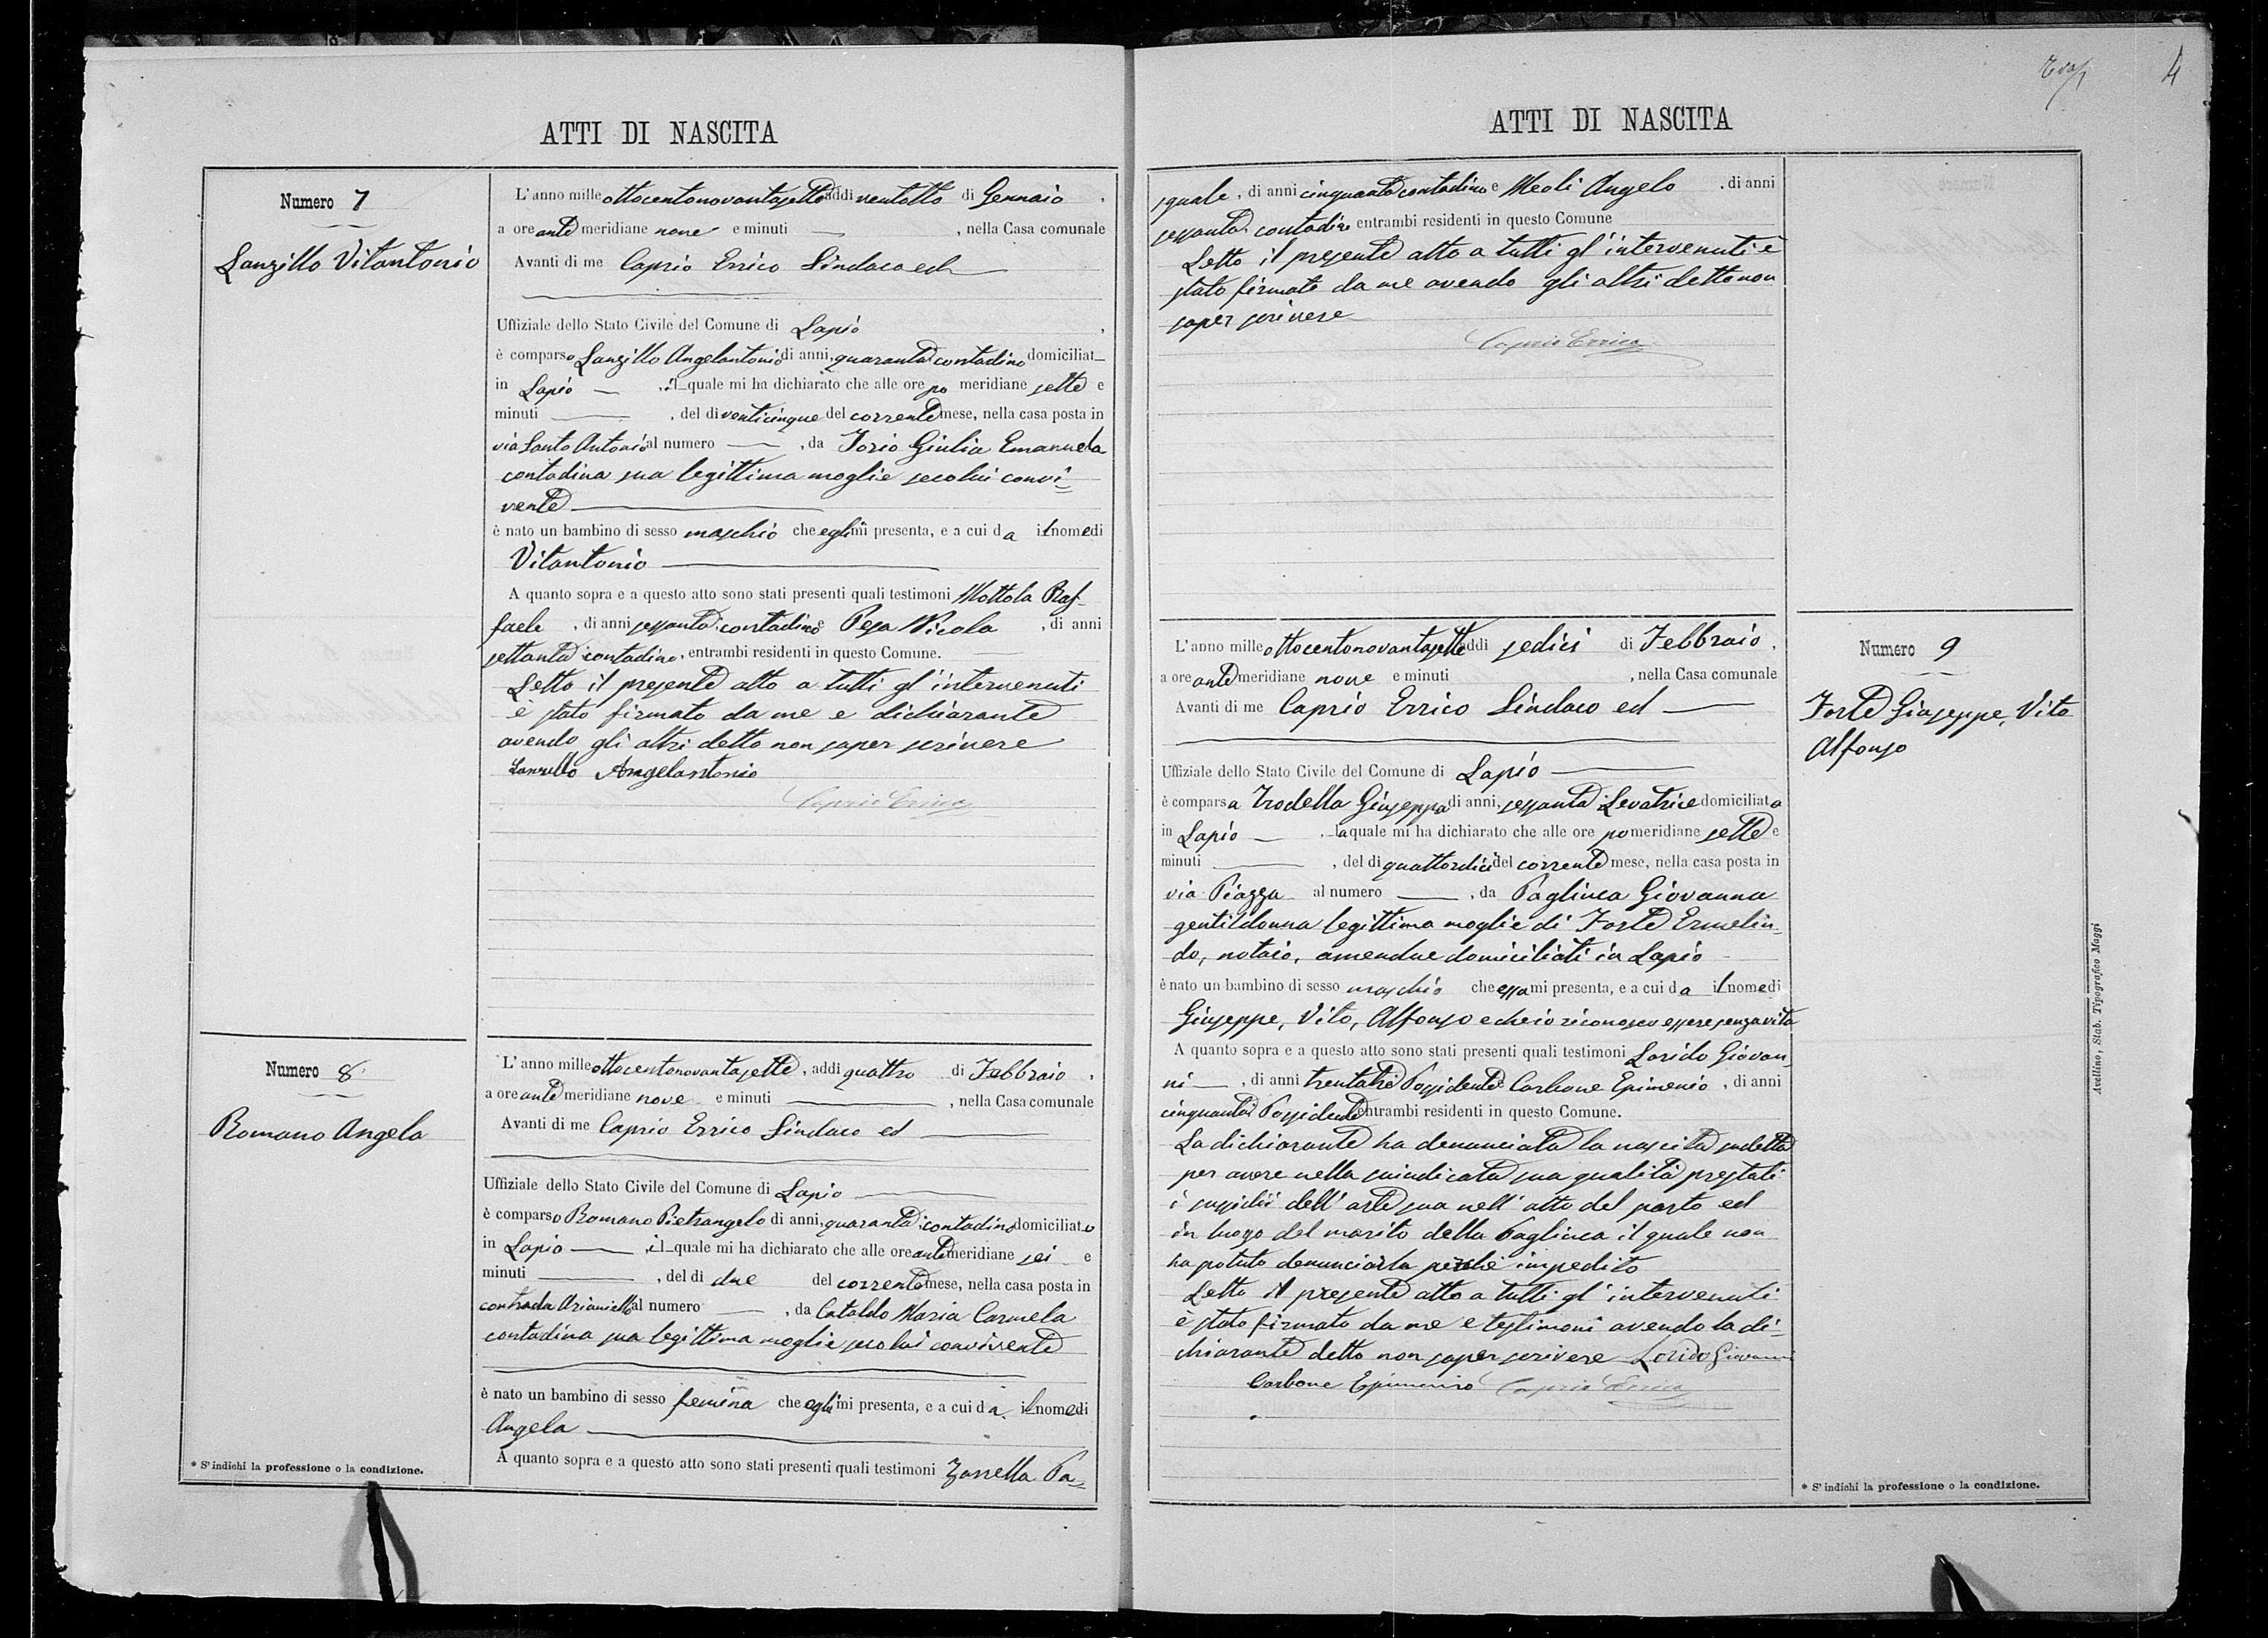 ATTI DI NASCITA
Numero 7
Lanzillo Vitantonio
L'anno mille ottocentonovantasette addì ventotto di Gennaio,
a ore ante meridiane nove e minuti — , nella Casa comunale
Avanti di me Caprio Errico Sindaco ed
Uffiziale dello Stato Civile del Comune di Lapio ,
è comparso Lanzillo Angelantonio di anni, quaranta contadino domiciliat—
in Lapio — , il quale mi ha dichiarato che alle ore po meridiane sette e
minuti — , del dì venticinque del corrente mese, nella casa posta in
via Santo Antonio al numero — , da Iorio Giulia Emanuela
contadina sua legittima moglie secolui convi=
vente
è nato un bambino di sesso maschio che egli mi presenta, e a cui da il nome di
Vitantonio
A quanto sopra e a questo atto sono stati presenti quali testimoni Mottola Raf-
faele , di anni sessanta contadino e Pesa Nicola , di anni
settanta contadino, entrambi residenti in questo Comune.
Letto il presente atto a tutti gl'intervenuti
è stato firmato da me e dichiarante
avendo gli altri detto non saper scrivere
Lanzillo Angelantonio
Caprio Errico
Numero 8
Romano Angela
L'anno mille ottocentonovantasette, addì quattro di Febbraio,
a ore ante meridiane nove e minuti — , nella Casa comunale
Avanti di me Caprio Errico Sindaco ed
Uffiziale dello Stato Civile del Comune di Lapio
è comparso Romano Pietrangelo di anni, quaranta contadino domiciliato
in Lapio — , il quale mi ha dichiarato che alle ore antemeridiane sei e
minuti — , del dì due del corrente mese, nella casa posta in
contrada Arianiello al numero — , da Cataldo Maria Carmela
contadina sua legittima moglie seco lui convivente
è nato un bambino di sesso femina che egli mi presenta, e a cui da il nome di
Angela
A quanto sopra e a questo atto sono stati presenti quali testimoni Zarrella Pa=
* S'indichi la professione o la condizione.
4
ATTI DI NASCITA
squale, di anni cinquanta contadino e Meoli Angelo , di anni
sessanta contadino entrambi residenti in questo Comune
Letto il presente atto a tutti gl'intervenuti è
stato firmato da me avendo gli altri detto non
saper scrivere
Caprio Errico
Numero 9
Forte Giuseppe, Vito
Alfonso
L'anno mille ottocentonovantasette addì sedici di Febbraio,
a ore ante meridiane nove e minuti , nella Casa comunale
Avanti di me Caprio Errico Sindaco ed
Uffiziale dello Stato Civile del Comune di Lapio
è comparsa Trodella Giuseppa di anni, sessanta Levatrice domiciliata
in Lapio — , la quale mi ha dichiarato che alle ore pomeridiane sette e
minuti — , del dì quattordici del corrente mese, nella casa posta in
via Piazza al numero — , da Pagliuca Giovanna
gentildonna legittima moglie di Forte Ermelin=
do, notaio, amendue domiciliati in Lapio
è nato un bambino di sesso maschio che essa mi presenta, e a cui da il nome di
Giuseppe, Vito, Alfonso e che io riconosco essere senza vita
A quanto sopra e a questo atto sono stati presenti quali testimoni Lorido Giovan
ni — , di anni trentatre Possidente e Carbone Epimenio , di anni
cinquanta Possidente entrambi residenti in questo Comune.
La dichiarante ha denunciata la nascita sudetta
per avere nella suindicata sua qualità prestati
i sussidii dell'arte sua nell'atto del parto ed
in luogo del marito della Pagliuca il quale non
ha potuto denunciarla perchè impedito
Letto il presente atto a tutti gl'intervenuti
è stato firmato da me e testimoni avendo la di=
chiarante detto non saper scrivere Lorido Giovanni
Carbone Epimenio Caprio Errico
* S'indichi la professione o la condizione.
Avellino, Stab. Tipografico Maggi